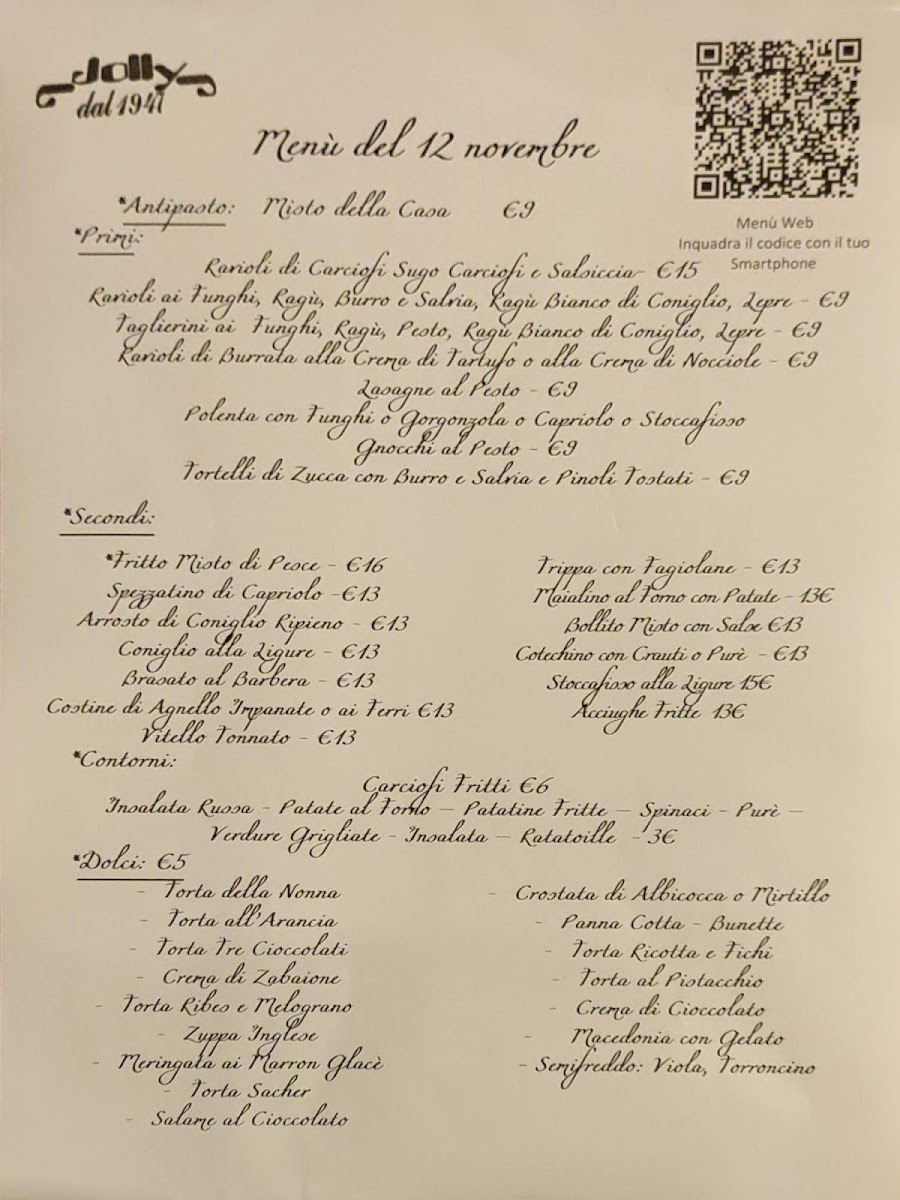 Jolly
dal 1947
Menù del 12 novembre
Menù Web
Inquadra il codice con il tuo
Smartphone
*Antipasto: Misto della Casa €9
*Primi:
Ravioli di Carciofi Sugo Carciofi e Salsiccia- €15
Ravioli ai Funghi, Ragù, Burro e Salvia, Ragù Bianco di Coniglio, Lepre - €9
Taglierini ai Funghi, Ragù, Pesto, Ragù Bianco di Coniglio, Lepre - €9
Ravioli di Burrata alla Crema di Tartufo o alla Crema di Nocciole - €9
Lasagne al Pesto - €9
Polenta con Funghi o Gorgonzola o Capriolo o Stoccafisso
Gnocchi al Pesto - €9
Tortelli di Zucca con Burro e Salvia e Pinoli Tostati - €9
*Secondi:
*Fritto Misto di Pesce - €16
Spezzatino di Capriolo -€13
Arrosto di Coniglio Ripieno - €13
Coniglio alla Ligure - €13
Brasato al Barbera - €13
Costine di Agnello Impanate o ai Ferri €13
Vitello Tonnato - €13
Trippa con Fagiolane - €13
Maialino al Forno con Patate - 13€
Bollito Misto con Salse €13
Cotechino con Crauti o Purè - €13
Stoccafisso alla Ligure 15€
Acciughe Fritte 13€
*Contorni:
Carciofi Fritti €6
Insalata Russa - Patate al Forno – Patatine Fritte – Spinaci - Purè –
Verdure Grigliate - Insalata – Ratatoille - 3€
*Dolci: €5
- Torta della Nonna
- Torta all'Arancia
- Torta Tre Cioccolati
- Crema di Zabaione
- Torta Ribes e Melograno
- Zuppa Inglese
- Meringata ai Marron Glacè
- Torta Sacher
- Salame al Cioccolato
- Crostata di Albicocca o Mirtillo
- Panna Cotta - Bunette
- Torta Ricotta e Fichi
- Torta al Pistacchio
- Crema di Cioccolato
- Macedonia con Gelato
- Semifreddo: Viola, Torroncino